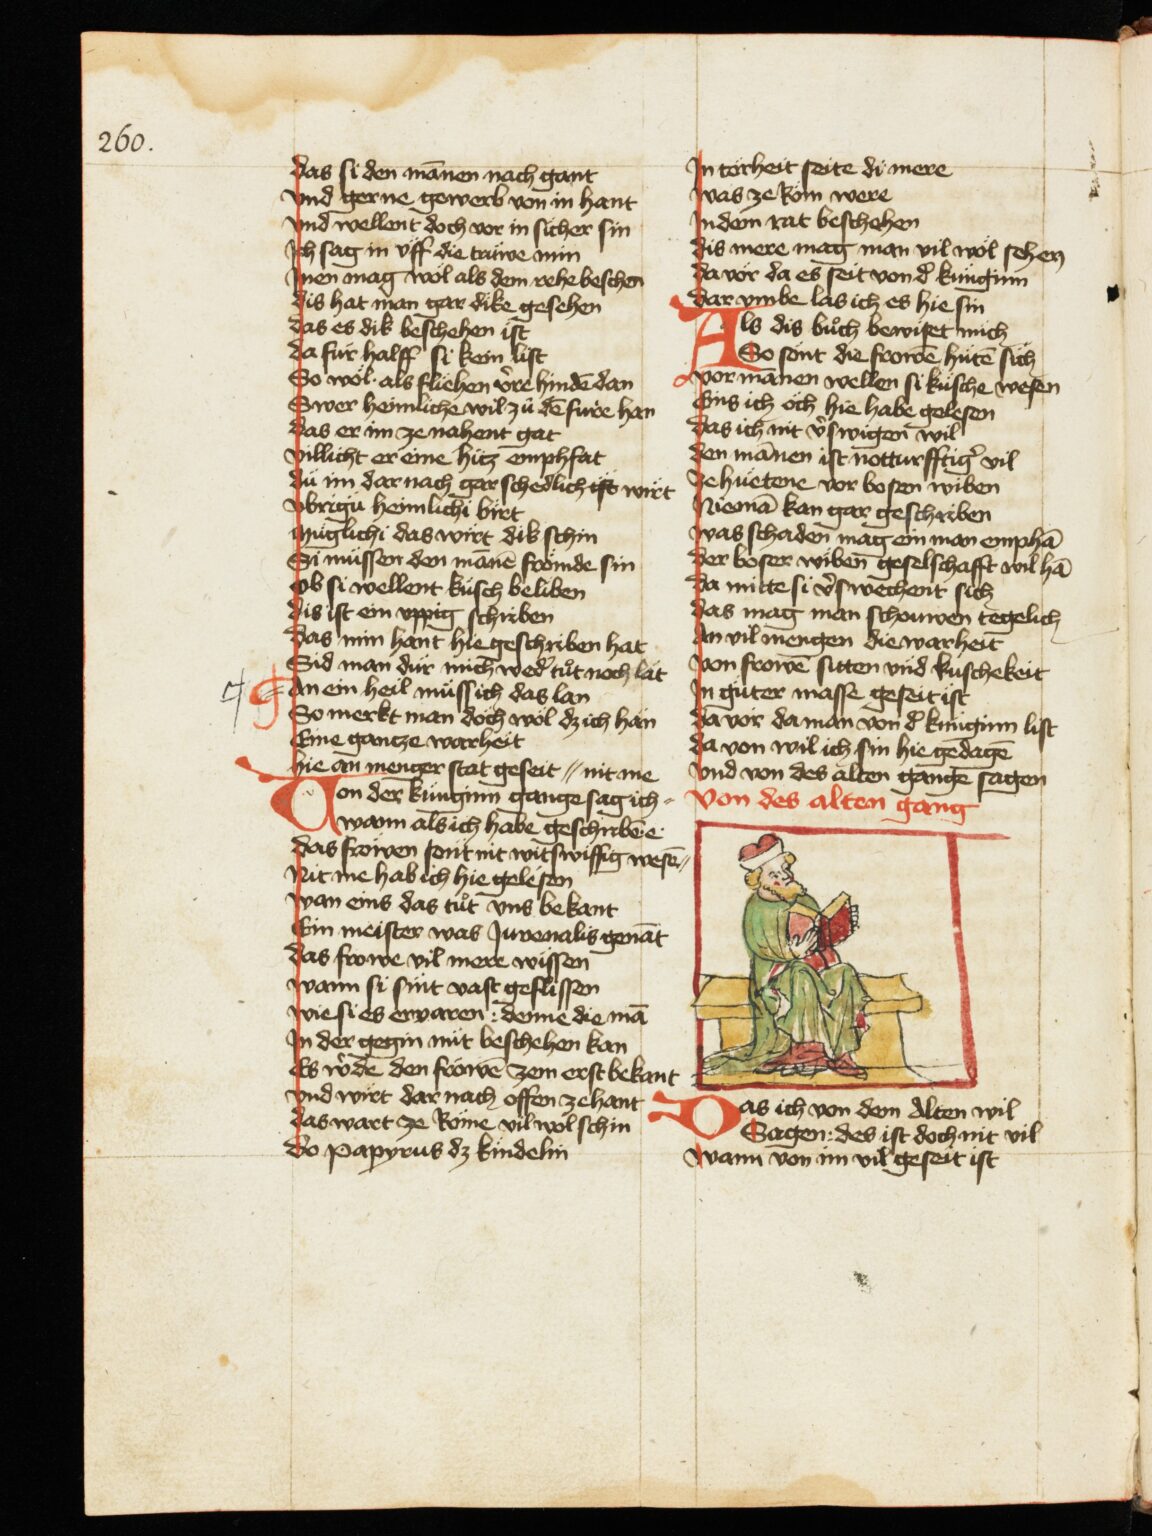 260.
das si den mānen nach gant
vnd gerne gewerb von in hant
vnd wellent doch vor in sicher sin
Ich sag in vff die trüwe min
Inen mag wol als dem rehe beschen
dis hat man gar dike gesehen
das es dik beschehen ist
da für halff si kein list
So wol als fliehen v̓re hindē dan
Swer heimliche wil zů dē füre han
das er im ze nahent gat
villicht er eine hitz emphfat
dü im dar nach gar schedlich ist wirt
vbrigü heimlichi birt
müglichi das wirt dik schin
Si müssen den mānē frömde sin
ob si wellent küsch beliben
dis ist ein vppig schriben
das min hant hie geschriben hat
Sid man dür mich wed̓ tůt noch lat
An ein heil müss ich das lan
So merkt man doch wol dz ich han
Eine gantze warheit
hie an menger stat geseit // nit me
Von der künginn gange sag ich
wann als ich habe geschribē e
das frowen sönt nit witswiffig wesē //
Nit me hab ich hie gelesen
wan eins das tůt vns bekant
Ein meister was Juvenalis genāt
das frowe vil mere wissen
wann si sint vast geflissen
wie si es ervaren : denne die mā
In der gegin nüt beschehen kan
Es w̓de den frowē zem erst bekant
vnd wirt dar nach offen ze hant
das wart ze Rome vil wol schin
do Papyrus dz kindelin
In torheit seite di mere
was ze Rom were
In dem rat beschehen
dis mere mag man vil wol sehen
da vor da es seit von d̓ künginn
dar vmbe las ich es hie sin
Als dis bůch bewiset mich
So sönt die frowē hütē sich
vor mānen wellen si küsche wesen
Eins ich öch hie habe gelesen
das ich nit v̓swigen wil
den mānen ist notturfftig̓ vil
ze hüetene vor bosen wiben
Niemā kan gar geschriben
was schaden mag ein man emphā
der boser wiben geselschafft wil hā
da mitte si v̓swechent sich
das mag man schouwen tegelich
An vil mengen die warheit
von frowē sitten vnd kuschekeit
In güter masse geseit ist
da vor da man von d̓ künginn list
da von wil ich sin hie gedagē
vnd von des alten gange sagen
von des alten gang
Das ich von dem Alten wil
Sagen : des ist doch nit vil
wann von im vil geseit ist